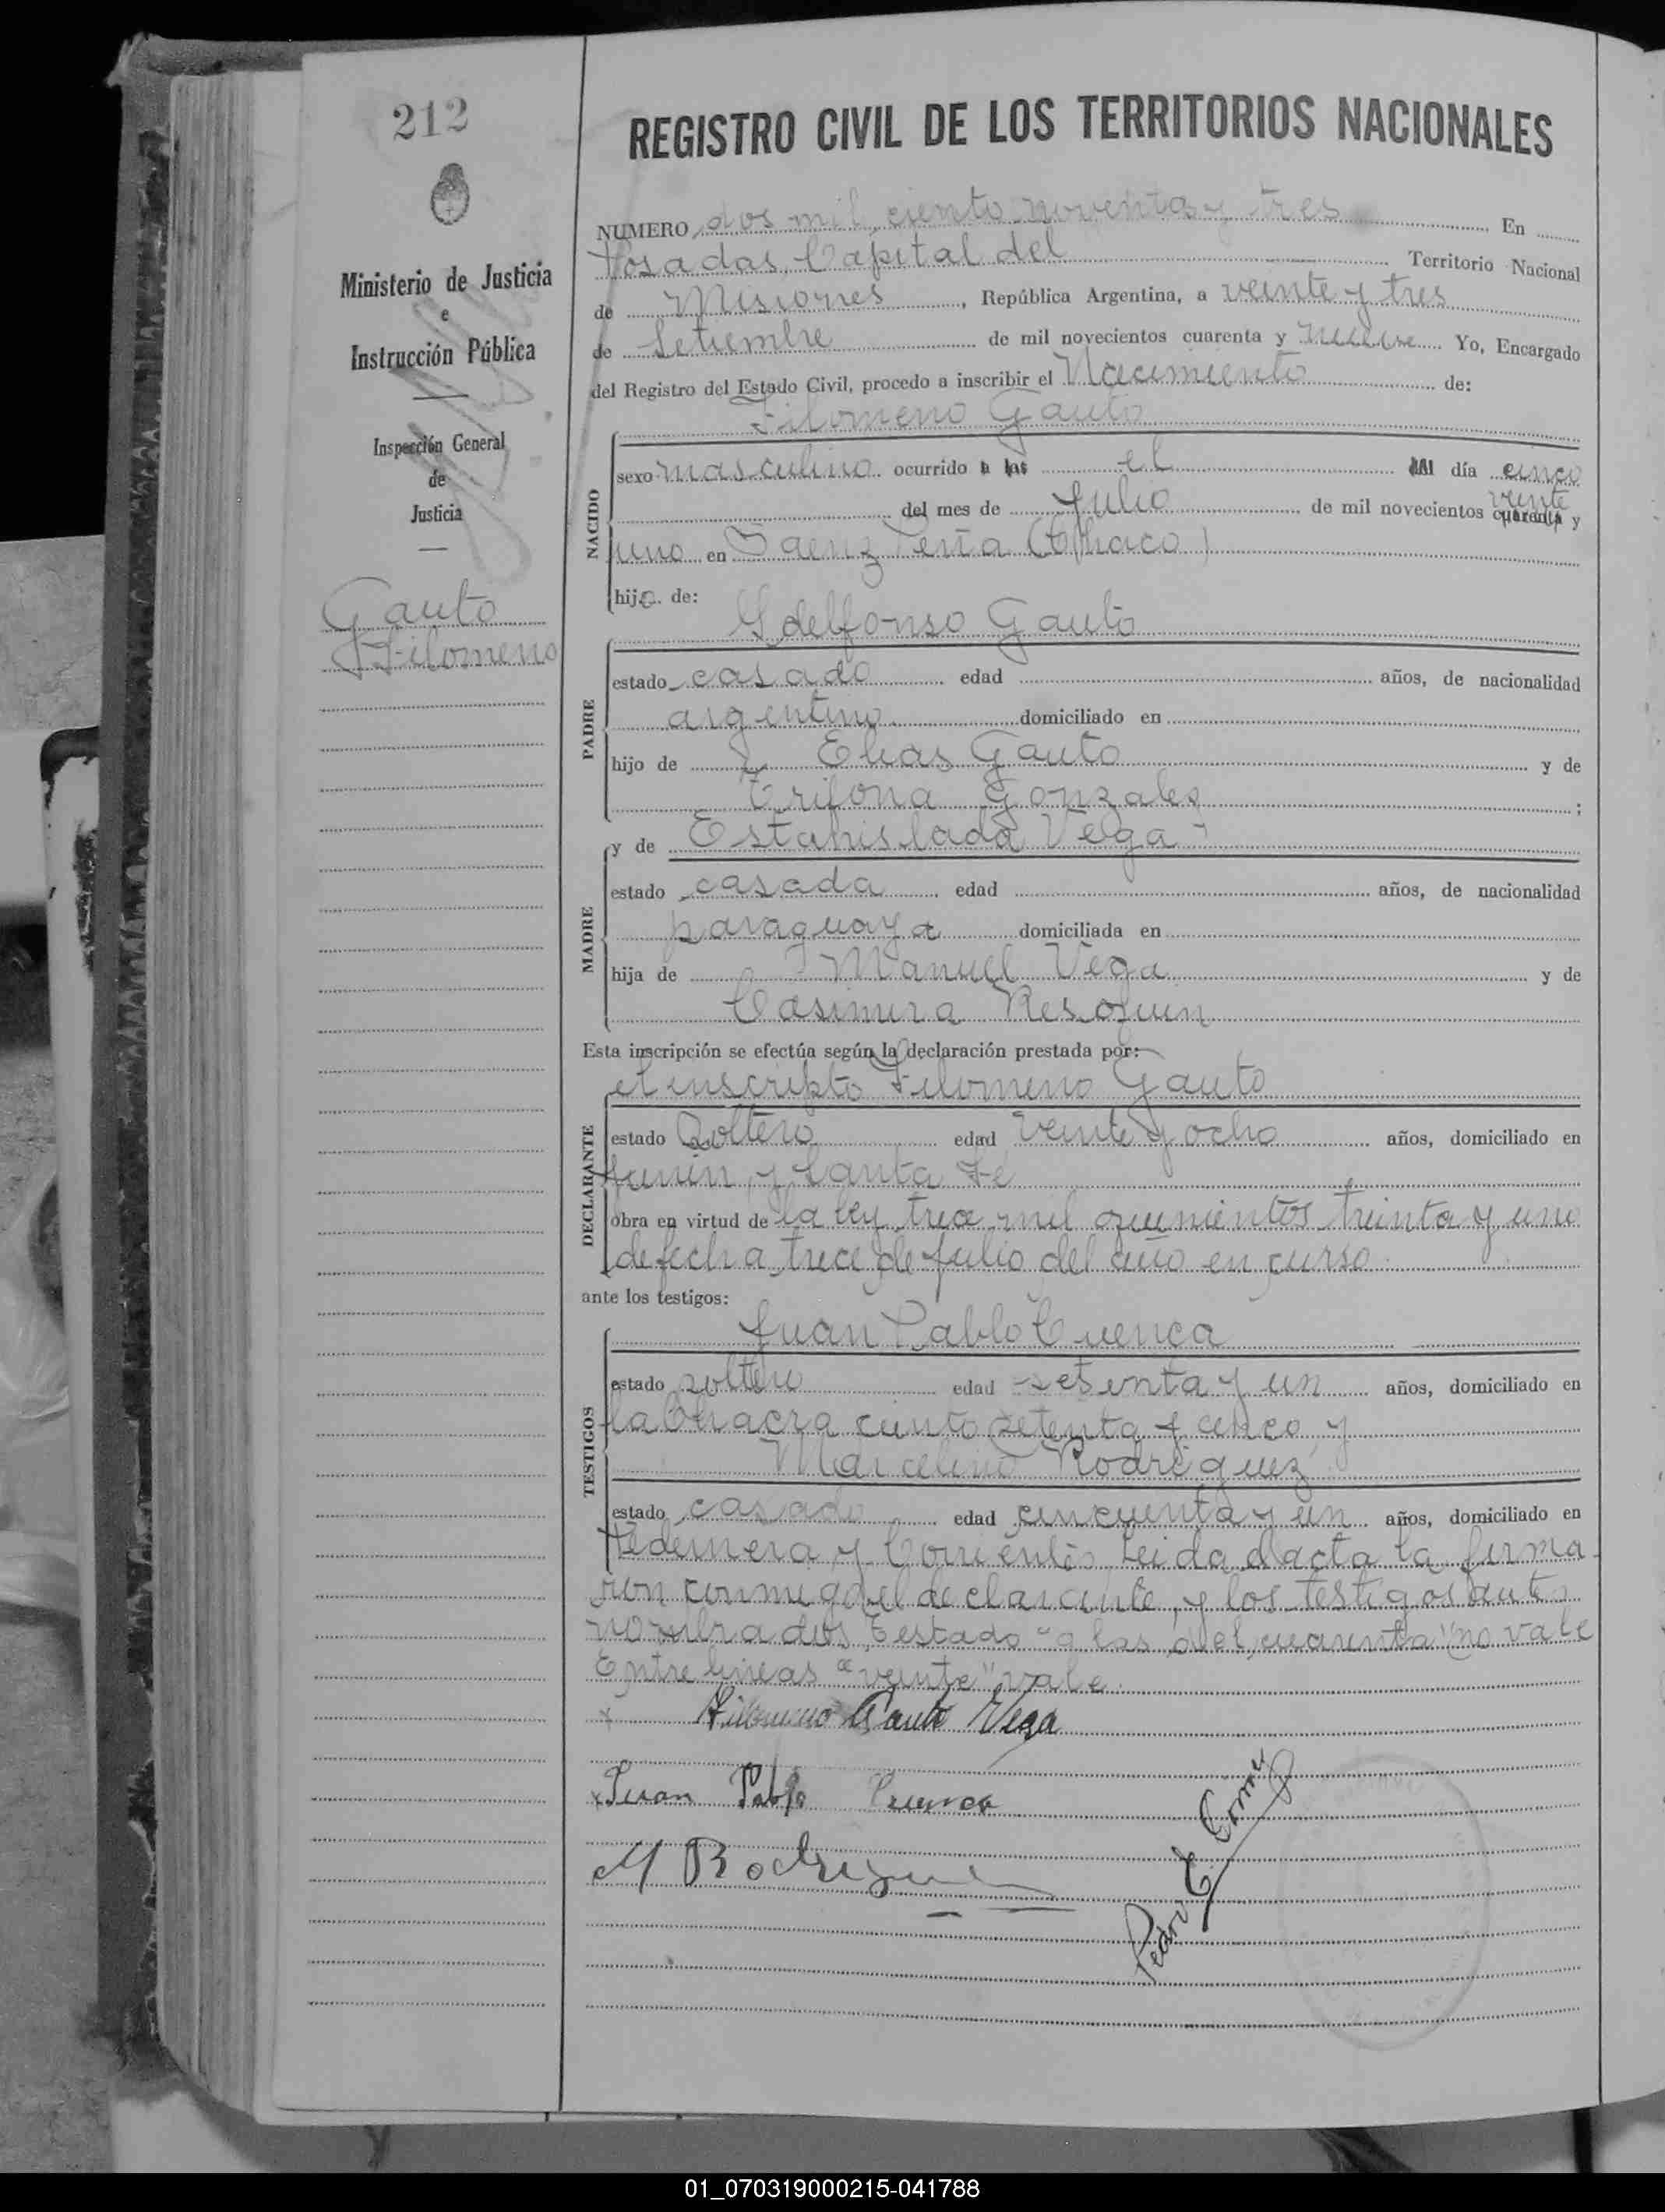 212
REGISTRO CIVIL DE LOS TERRITORIOS NACIONALES
Ministerio de Justicia
e
Instrucción Pública
Inspección General
de
Justicia
Gauto
Filomeno
NUMERO dos mil ciento noventa y tres En
Posadas, Capital del Territorio Nacional
de Misiones, República Argentina, a veinte y tres
de Setiembre de mil novecientos cuarenta y nueve Yo, Encargado
del Registro del Estado Civil, procedo a inscribir el Nacimiento de:
Filomeno Gauto
NACIDO
sexo masculino ocurrido a las el del día cinco
veinte
del mes de Julio de mil novecientos cuarenta y
uno en Saenz Peña (Chaco)
hijo de:
Ildelfonso Gauto
PADRE
estado casado edad años, de nacionalidad
argentino domiciliado en
hijo de Elias Gauto y de
Trifona Gonzales ;
y de Estanislada Vega
MADRE
estado casada edad años, de nacionalidad
paraguaya domiciliada en
hija de Manuel Vega y de
Casimira Resquin
Esta inscripción se efectúa según la declaración prestada por:
el inscripto Filomeno Gauto
DECLARANTE
estado Soltero edad veinte y ocho años, domiciliado en
Junin y Santa Fé
obra en virtud de la ley trece mil quinientos treinta y uno
de fecha trece de Julio del año en curso.
ante los testigos:
Juan Pablo Cuenca
TESTIGOS
estado soltero edad sesenta y un años, domiciliado en
la Chacra ciento setenta y cinco y
Marcelino Rodriguez
estado casado edad cincuenta y un años, domiciliado en
Pedernera y Corrientes Leida el acta la firma-
ron conmigo el declarante, y los testigos antes
nombrados, Testado "a las del, cuarenta" no vale
Entre lineas "veinte" vale.
Filomeno Gauto Vega
Juan Pablo Cuenca
M Rodriguez
01_070319000215-041788